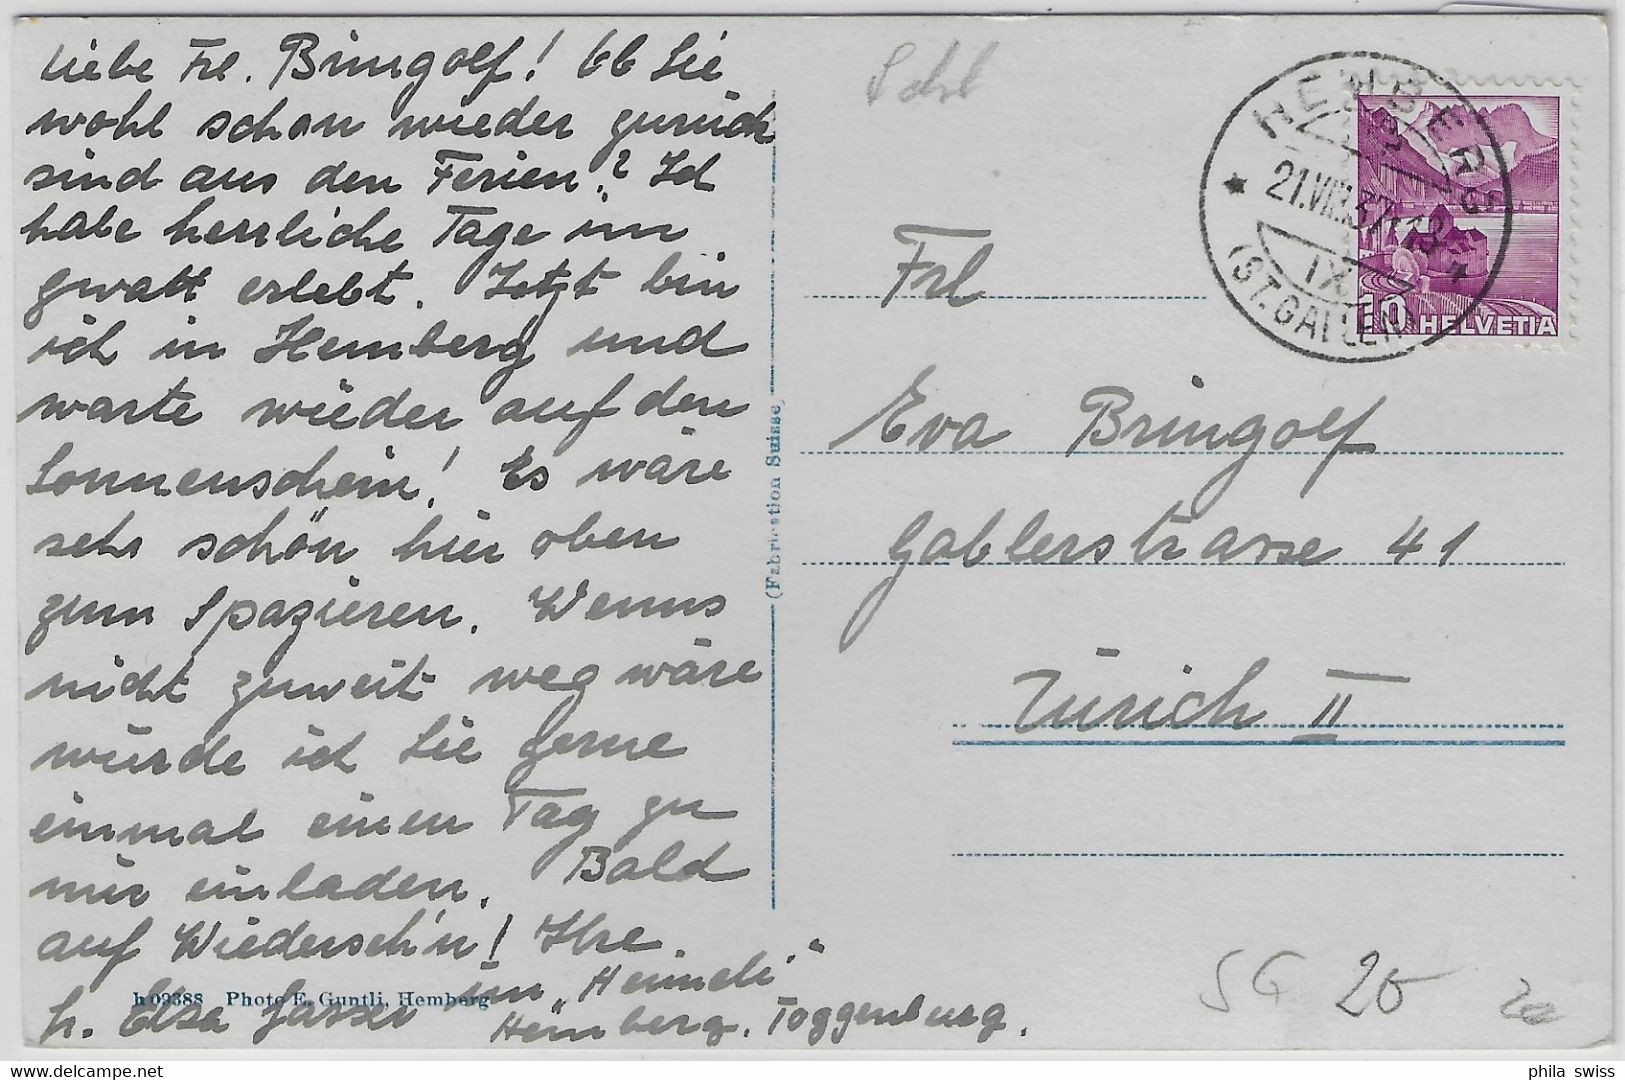 Liebe Frl. Bringolf! Ob Sie
wohl schon wieder zurück
sind aus den Ferien? Ich
habe herrliche Tage im
Gwatt erlebt. Jetzt bin
ich in Hemberg und
warte wieder auf den
Sonnenschein! Es wäre
sehr schön hier oben
zum Spazieren. Wenns
nicht zuweit weg wäre
würde ich Sie gerne
einmal einen Tag zu
mir einladen. Bald
auf Wiederseh'n! Ihre
h. Elsa Gasser im „Heimeli“
Hemberg. Toggenburg.
h 09388 Photo E. Guntli, Hemberg
(Fabrication Suisse)
Schl
HEMBERG
21.VIII.37.-13
IX
(ST. GALLEN)
10 HELVETIA
Frl
Eva Bringolf
Gablerstrasse 41
Zürich II
SG 20
phila swiss